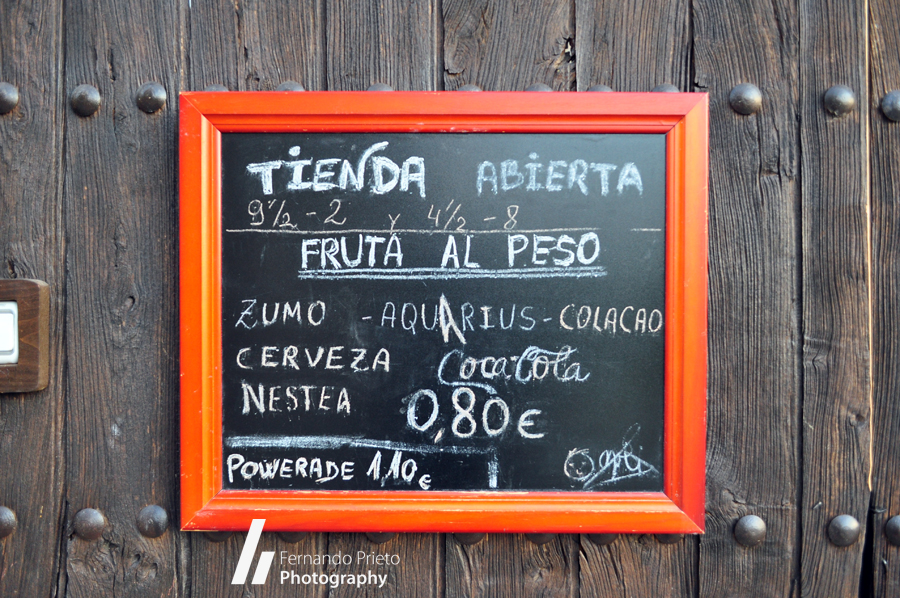 TIENDA ABIERTA
9 1/2 - 2 y 4 1/2 - 8
FRUTA AL PESO
ZUMO - AQUARIUS - COLACAO
CERVEZA Coca-Cola
NESTEA 0,80 €
POWERADE 1,10 €
Fernando Prieto
Photography